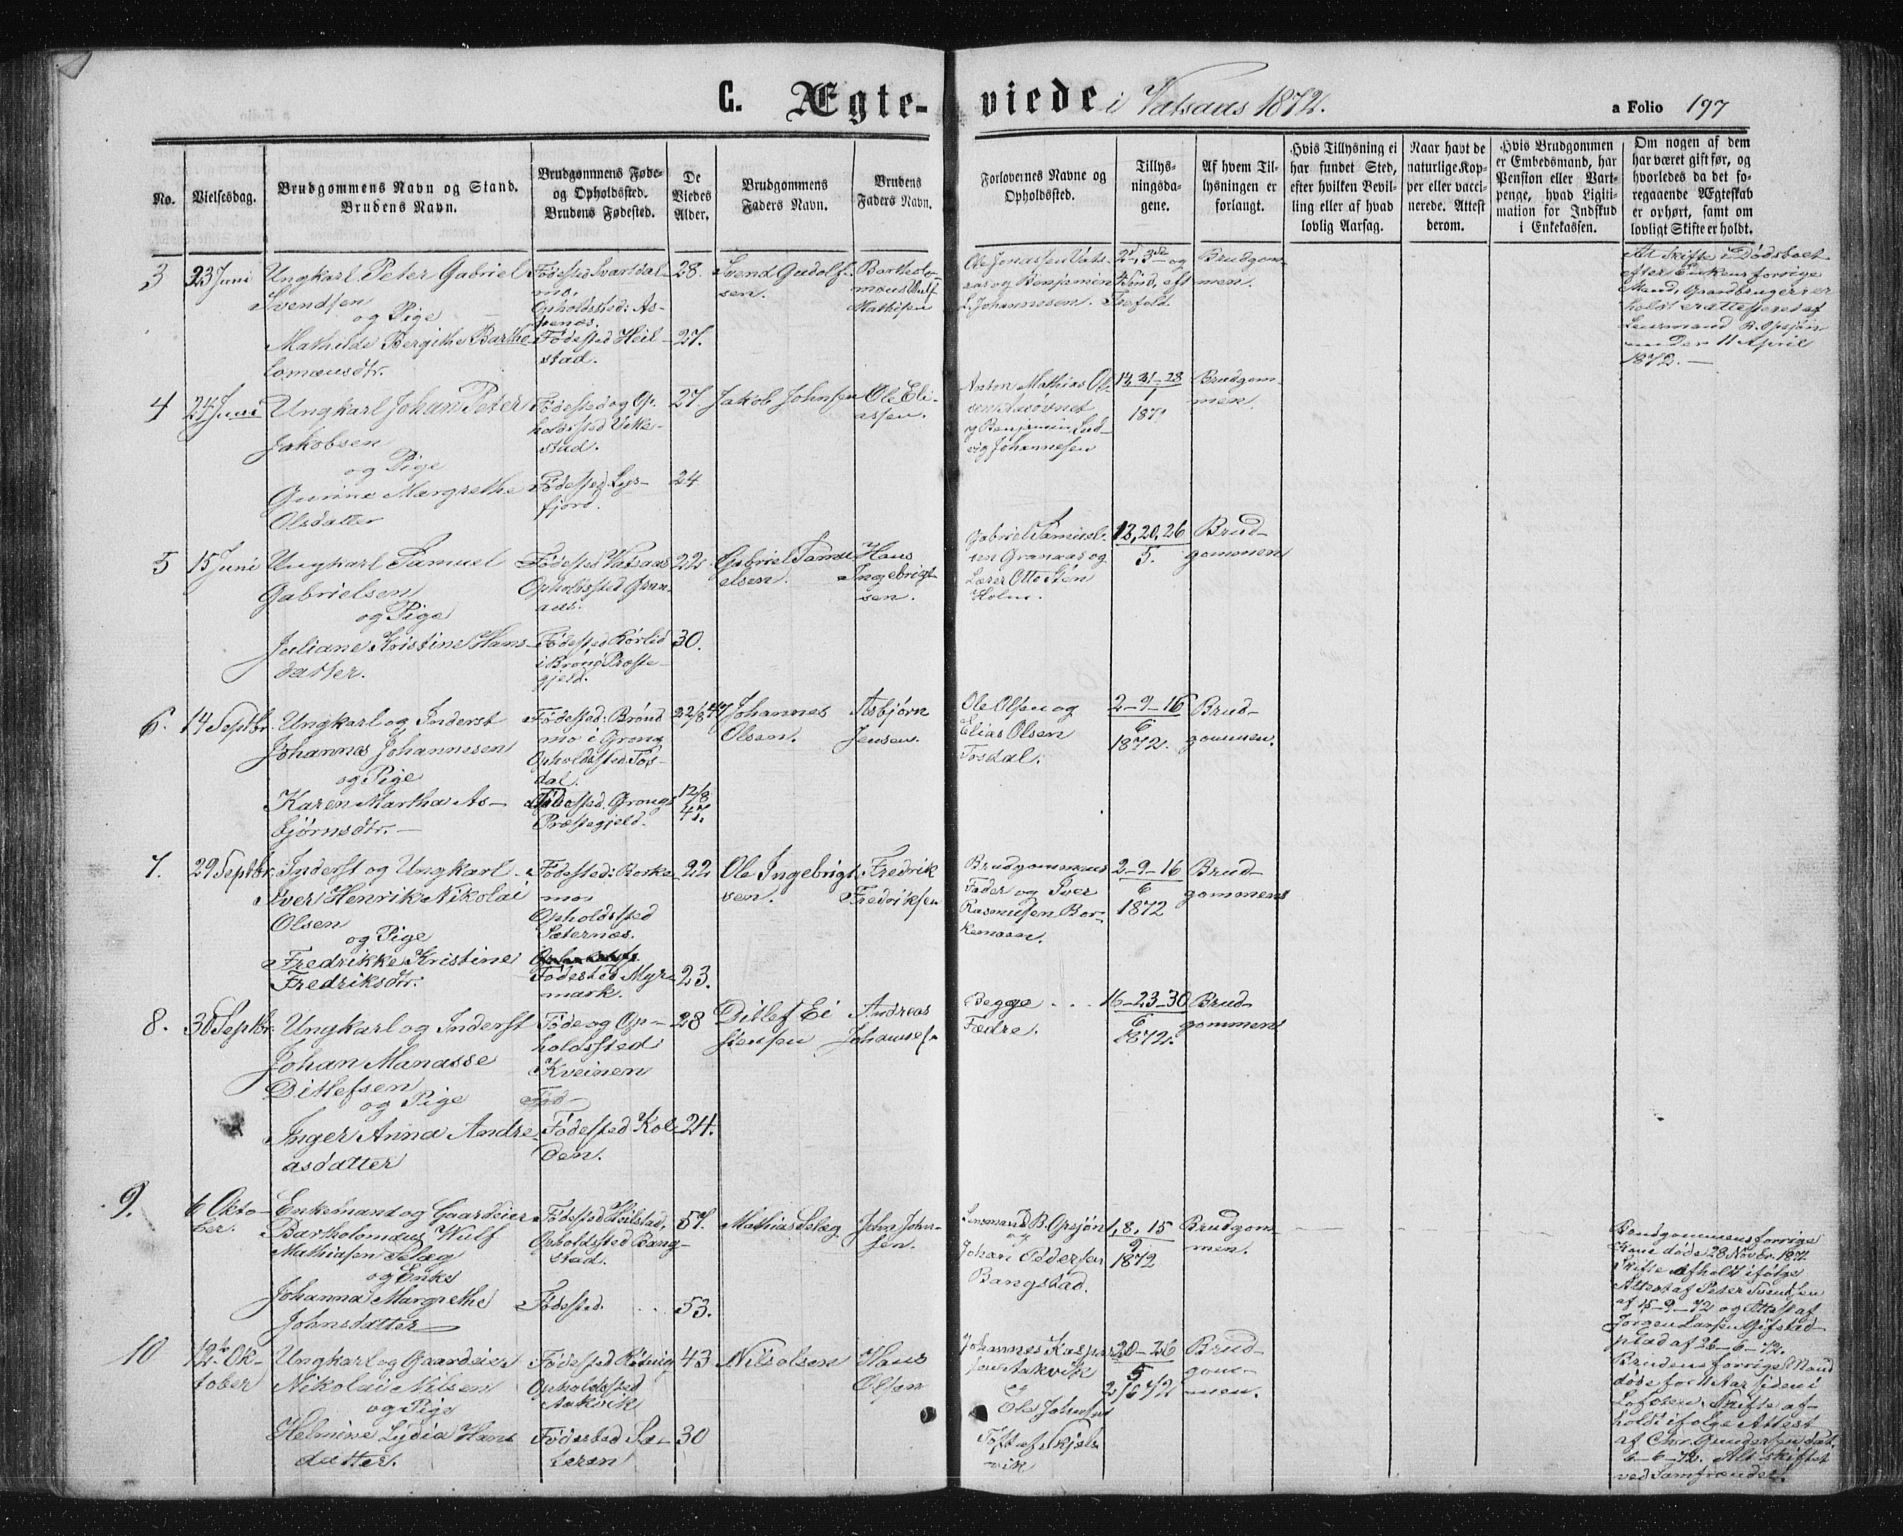 C. Ægte-viede i Vatsaas 1872.
a Folio 197
No.
Vielsesdag.
Brudgommens Navn og Stand.
Brudens Navn.
Brudgommens Føde-
og Opholdssted.
Brudens Fødested.
De
Viedes
Alder.
Brudgommens
Faders Navn.
Brudens
Faders Navn.
Forlovernes Navne og
Opholdssted.
Tillys-
ningsda-
gene.
Af hvem Til-
lysningen er
forlangt.
Hvis Tillysning ei
har fundet Sted,
efter hvilken Bevil-
ling eller af hvad
lovlig Aarsag.
Naar havt de
naturlige Kop-
per eller vacci-
nerede. Attest
derom.
Hvis Brudgommen
er Embedsmand, har
Pension eller Vart-
penge, hvad Ligiti-
mation for Indskud
i Enkekassen.
Om nogen af dem
har været gift før, og
hvorledes da det fo-
regaaende Ægteskab
er ophørt, samt om
lovligt Skifte er holdt.
3
23 Juni
Ungkarl Peter Gabriel
Svendsen
og Pige
Mathilde Bergithe Bartho
lomæusdtr.
Fødested Svartdal
mo,
Opholdssted: As-
penæs.
Fødested Heil-
stad.
28.
27.
Svend Gudolf-
sen.
Bartholo-
mæus Wulf
Mathisen
Ole Jonassen Vats-
aas og Benjamin
L. Johannesen.
2d, 3de og
Brudgom-
men.
At Skifte i Dødsboet
efter Enkens forrige
Mand,
holdt er attesteret af
Lensmand B. Opsjøn
under 11 April
1872.
4
24 Juni
Ungkarl Johan Peter
Jakobsen
og Pige
Gurine Margrethe
Olsdatter
Fødested og Op-
holdssted Vikke-
stad.
Fødested Lys-
fjord.
27
24
Jakob Johnsen
Ole Eli-
assen.
Anton Mathias Ol-
sen
og Benjamin Lud-
vig Johannesen
14, 21-28
1
187
Brudgom-
men.
5
15 Juni
Ungkarl Samuel
Gabrielsen
og Pige
Juliane Kristine Hans-
datter.
Fødested Vatsaas
Opholdssted Gran-
aas.
Fødested Kørlid
i Brønø Præste-
gjeld.
22.
30.
Gabriel Samu-
elsen.
Hans
Ingebrigt-
sen.
Gabriel Samuel-
sen Granaas og
Lærer Otto Sten
Holm.
13, 20, 26
5.
Brud-
gommen
6.
14 Septbr.
Ungkarl og Inderst
Johannes Johannesen
og Pige
Karen Martha As-
bjørnsdtr.
Fødested: Brønd
mo i Grong
Opholdssted Tos-
dal.
Fødested. Grongs
Præstegjeld.
22/8 47
12/8
47.
Johannes
Olsen.
Asbjørn
Jensen.
Ole Olsen og
Elias Olsen
Tosdal.
2-9-16
6
1872.
Brud-
gommen.
7.
29 Septbr.
Inderst og Ungkarl
Iver Henrik Nikolai
Olsen
og Pige
Fredrikke Kristine
Fredriksdtr.
Fødested: Borke-
mo,
Opholdssted
Sæternæs.
Fødested Myr-
mark.
22
23.
Ole Ingebrigt-
sen.
Fredrik
Fredriksen
Brudgommens
Fader og Iver
Rasmussen Bor-
kemoen.
2-9-16
6
1872
Brud-
gommens
8.
30 Septbr.
Ungkarl og Inderst
Johan Manasse
Ditlefsen
og Pige
Inger Anna Andre-
asdatter
Føde og Op-
holdssted
Kveinen
Fød
Fødested Kol-
den.
28
24.
Ditlef Ei
stensen
Andreas
Johansen
Begge
Fædre.
16-23-30
6
1872.
Brud-
gommens
9.
6 Okto-
ber.
Enkemand og Gaardeier
Bartholomæus Wulf
Mathiasen Selæg
og Enke
Johanna Margrethe
Johnsdatter
Fødested Heilstad,
Opholdssted Bang-
stad.
Fødested. . .
57.
53.
Mathias Selæg
John John-
sen.
Lensmand B. Opsjøn
og
Johan Pedersen
Bangstad.
1, 8, 15
9
1872
Brudgom-
men.
Brudgommens forrige
Kone døde 28 Novbr. 1871
Skifte afholdt ifølge
Attest af Peter Svendsen
af 15-9-72 og Attest af
Jørgen Larsen Gifstad
af 26-6-72.
Brudens forrige Mand
døde for 11 Aar siden i
Lofoten. Skifte af-
holdt ifølge Attest
af Chr. Gundersen
6-6-72. Alt skiftet
ved Samfrænder.
10
12te Ok-
tober
Ungkarl og Gaardeier
Nikolai Nilsen
og Pige
Helmine Lydia Hans
datter.
Fødested
Opholdssted
Aakvik
Fødested Sæ-
teren
43
30
Nils Olsen
Hans
Olsen
Johannes Kasper-
sen Aakvik
og
Ole Johnsen
Toft af Skjels-
vik
20-26
5
2/6 72
Brud-
gom-
men.